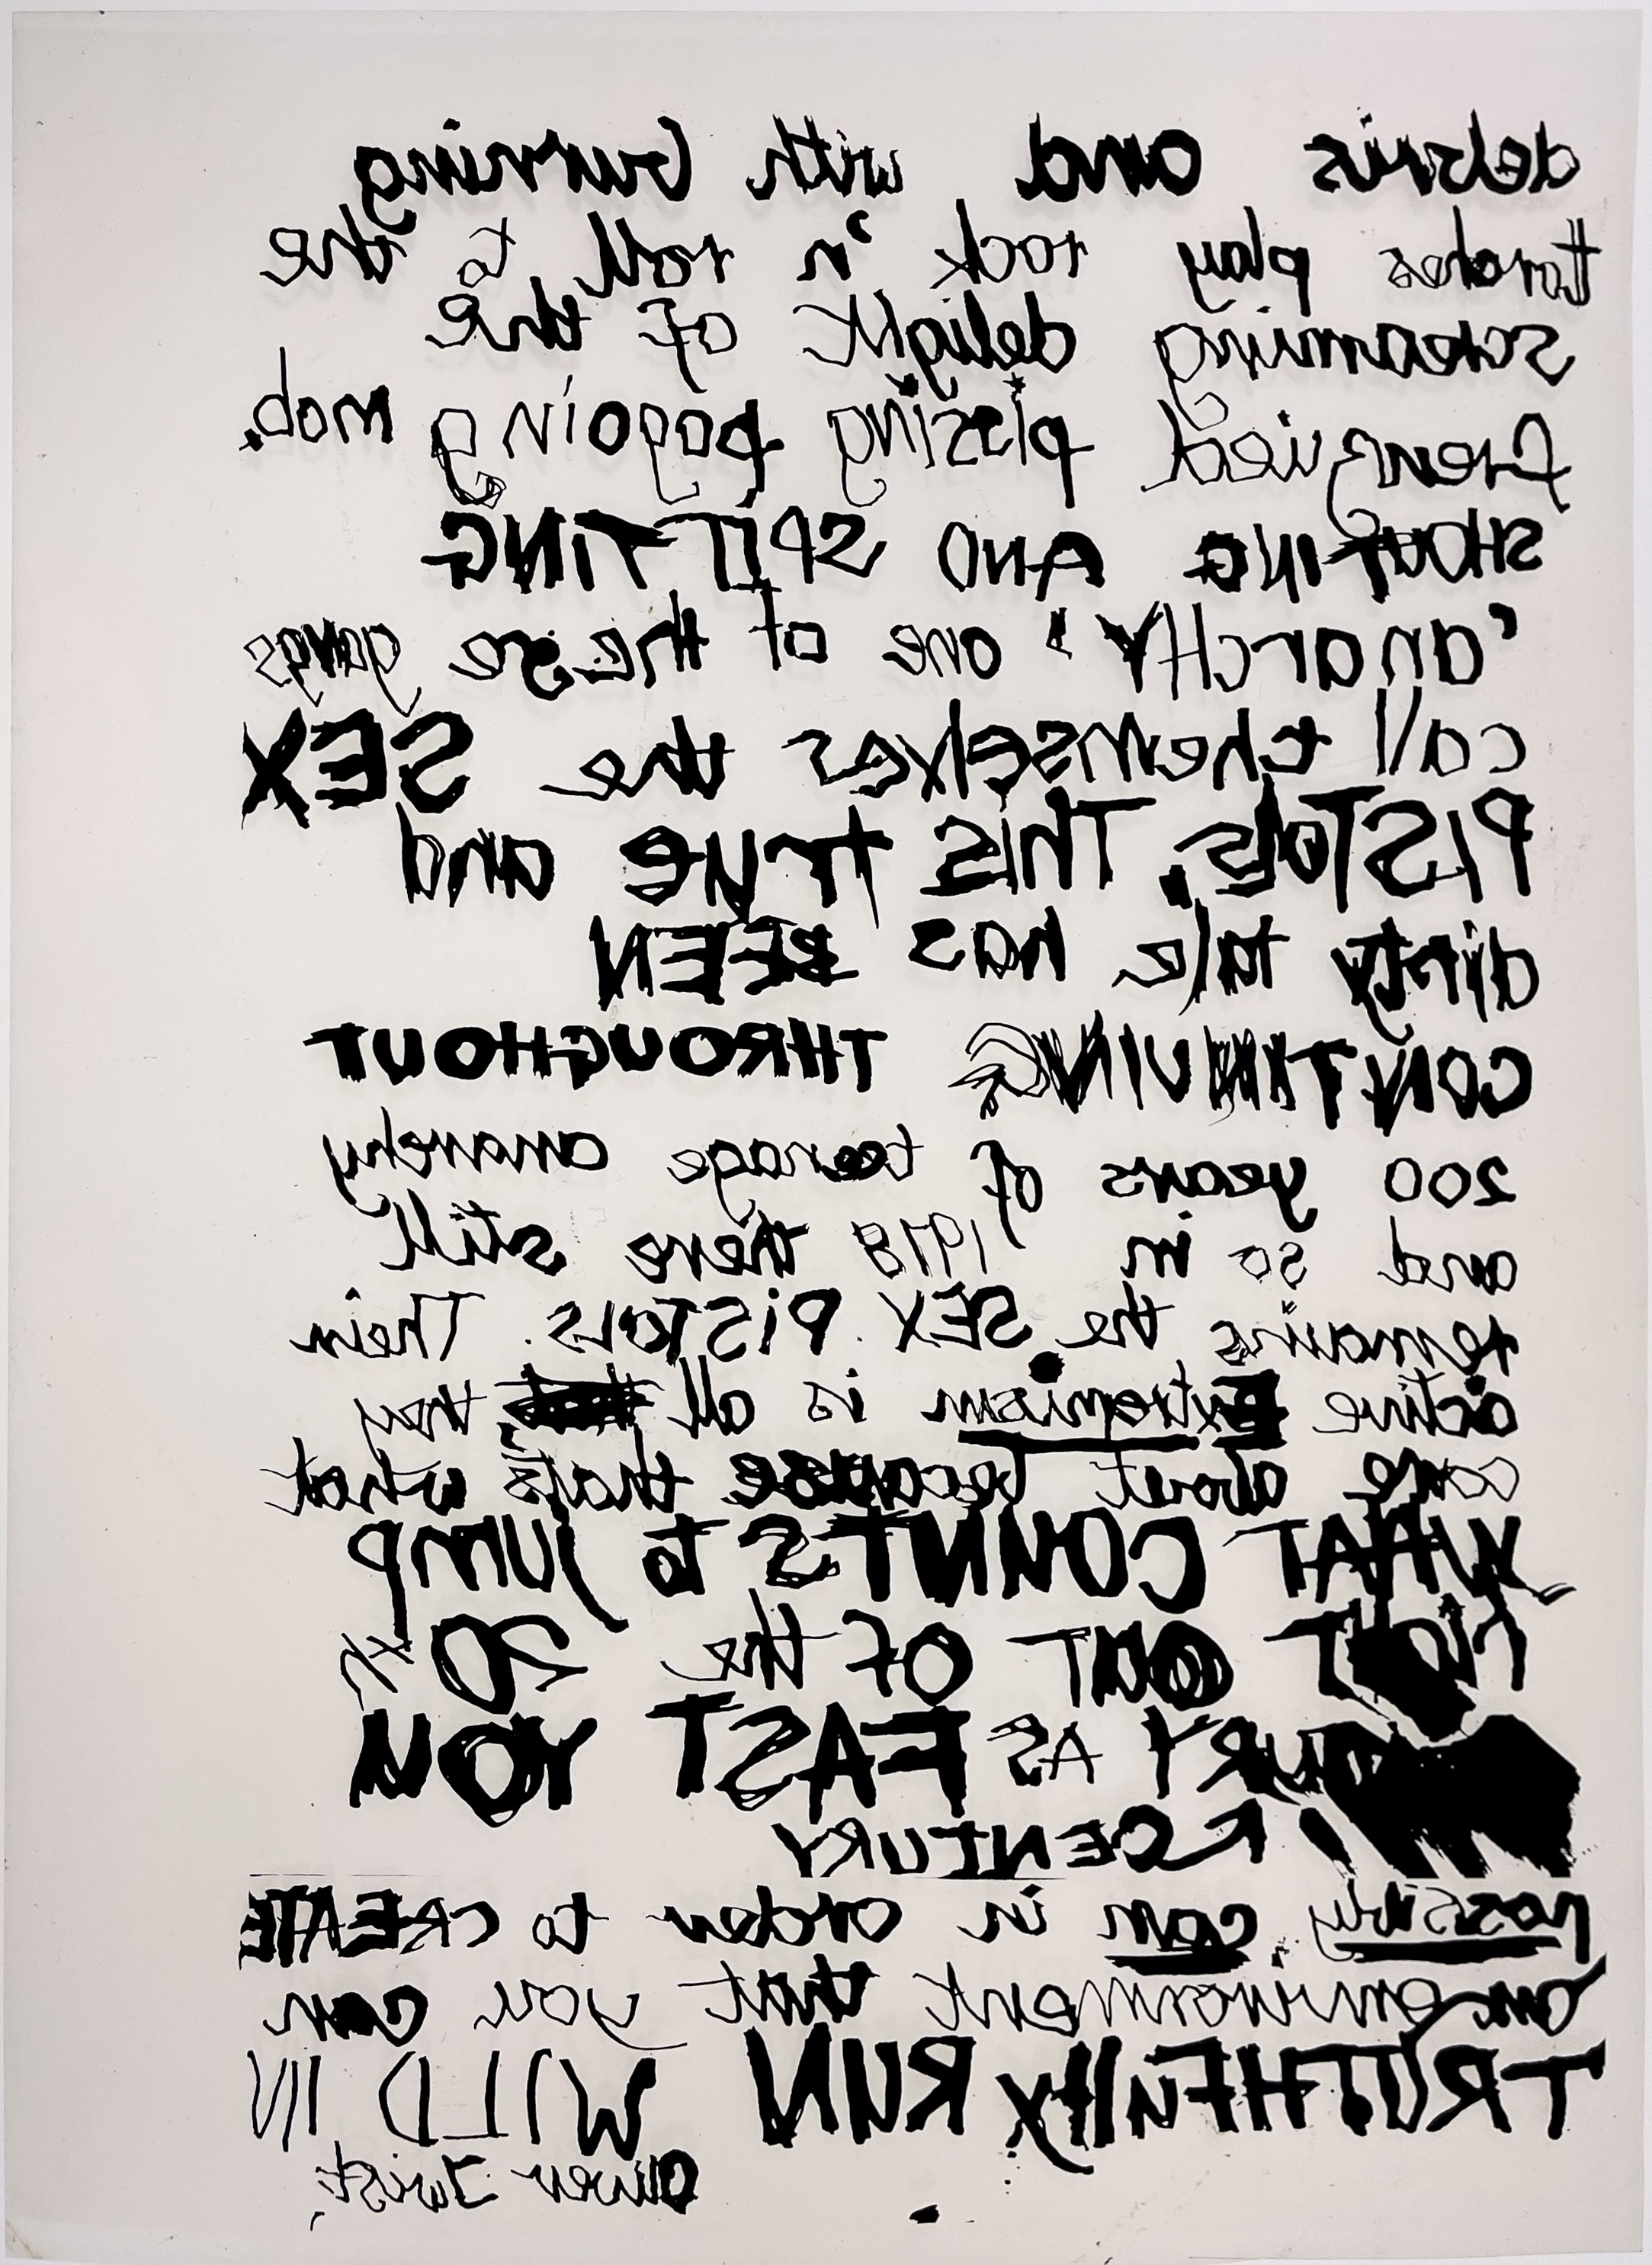 debris and with burning
torches play rock 'n' roll to the
screaming delight of the
frenzied pissing pogoing mob.
SHOUTING AND SPITTING
'anarcHY' one of these gangs
call themselves the SEX
PISTols. This true and
dirty tale has BEEN
CONTINUING THROUGHOUT
200 years of teenage anarchy
and so in 1978 there still
remains the SEX PiSTols. Their
active Extremism is all they
care about because thats what
WHAT COUNTS to JUMP
RIGHT OUT OF the 20th
AS FAST YOU
CENTURY
possibly can in order to CREATE
an environment that you can
TRUTHFULLY RUN WILD IN
Oliver Twist.